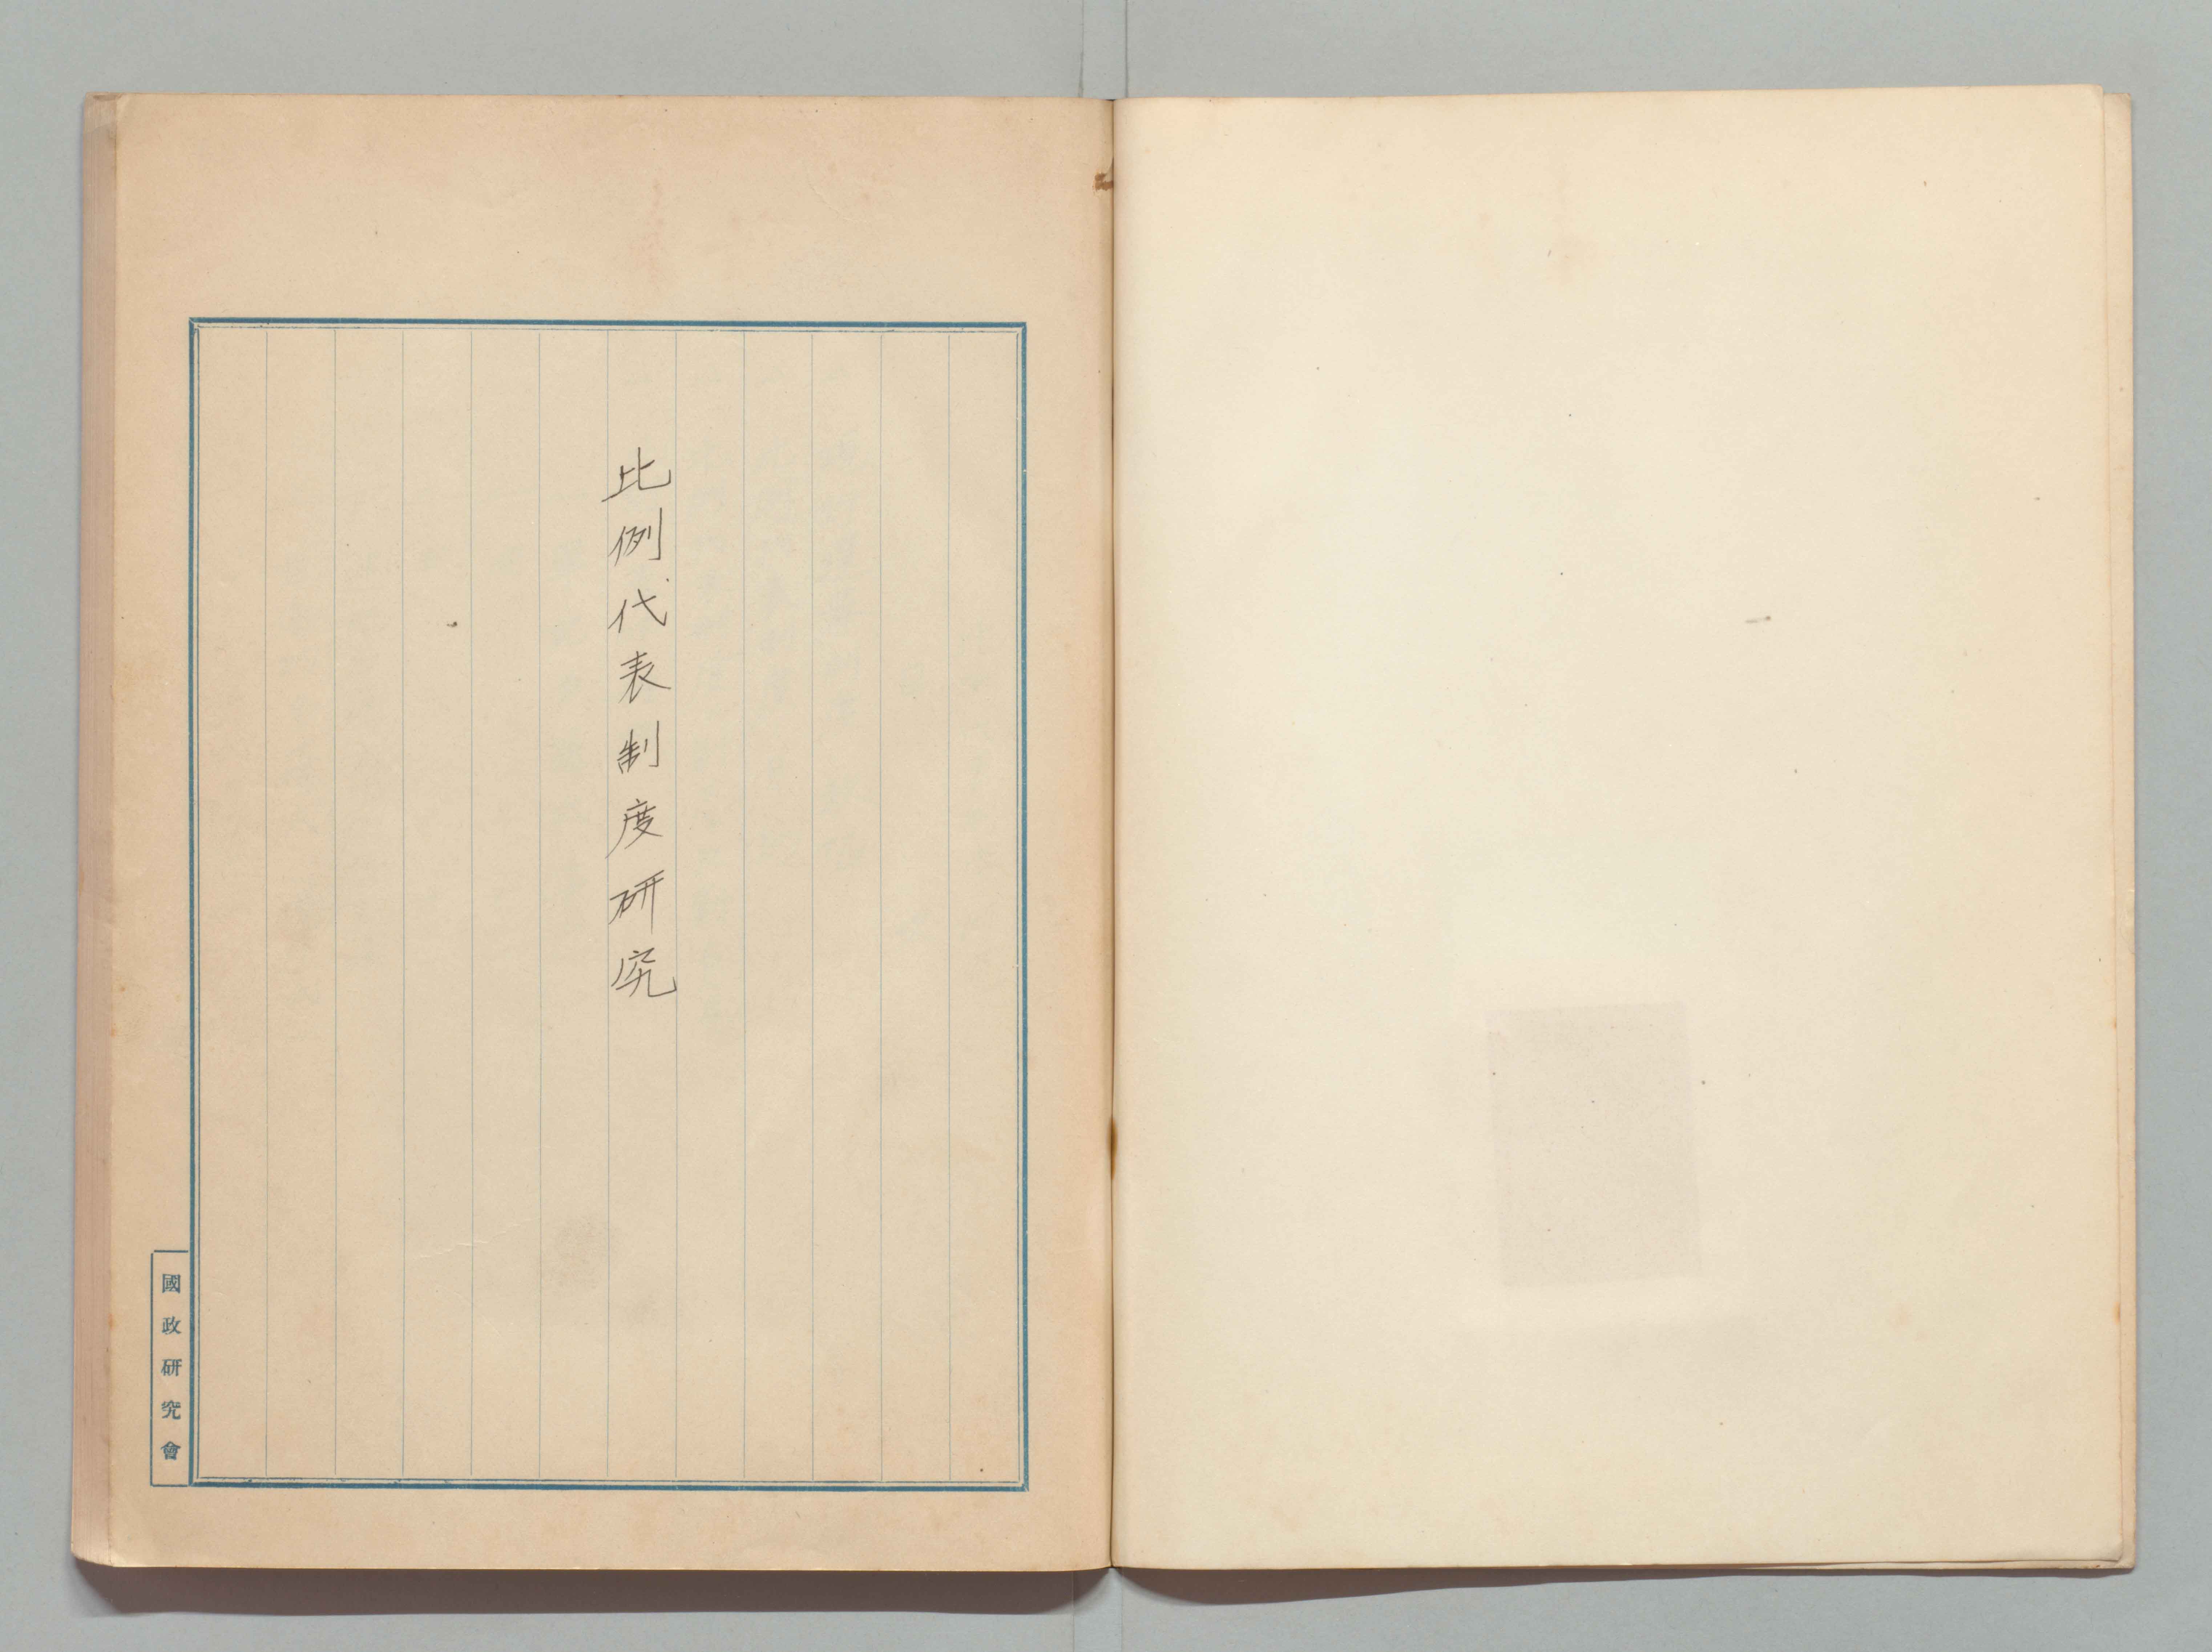 比例代表制度研究
國政研究會